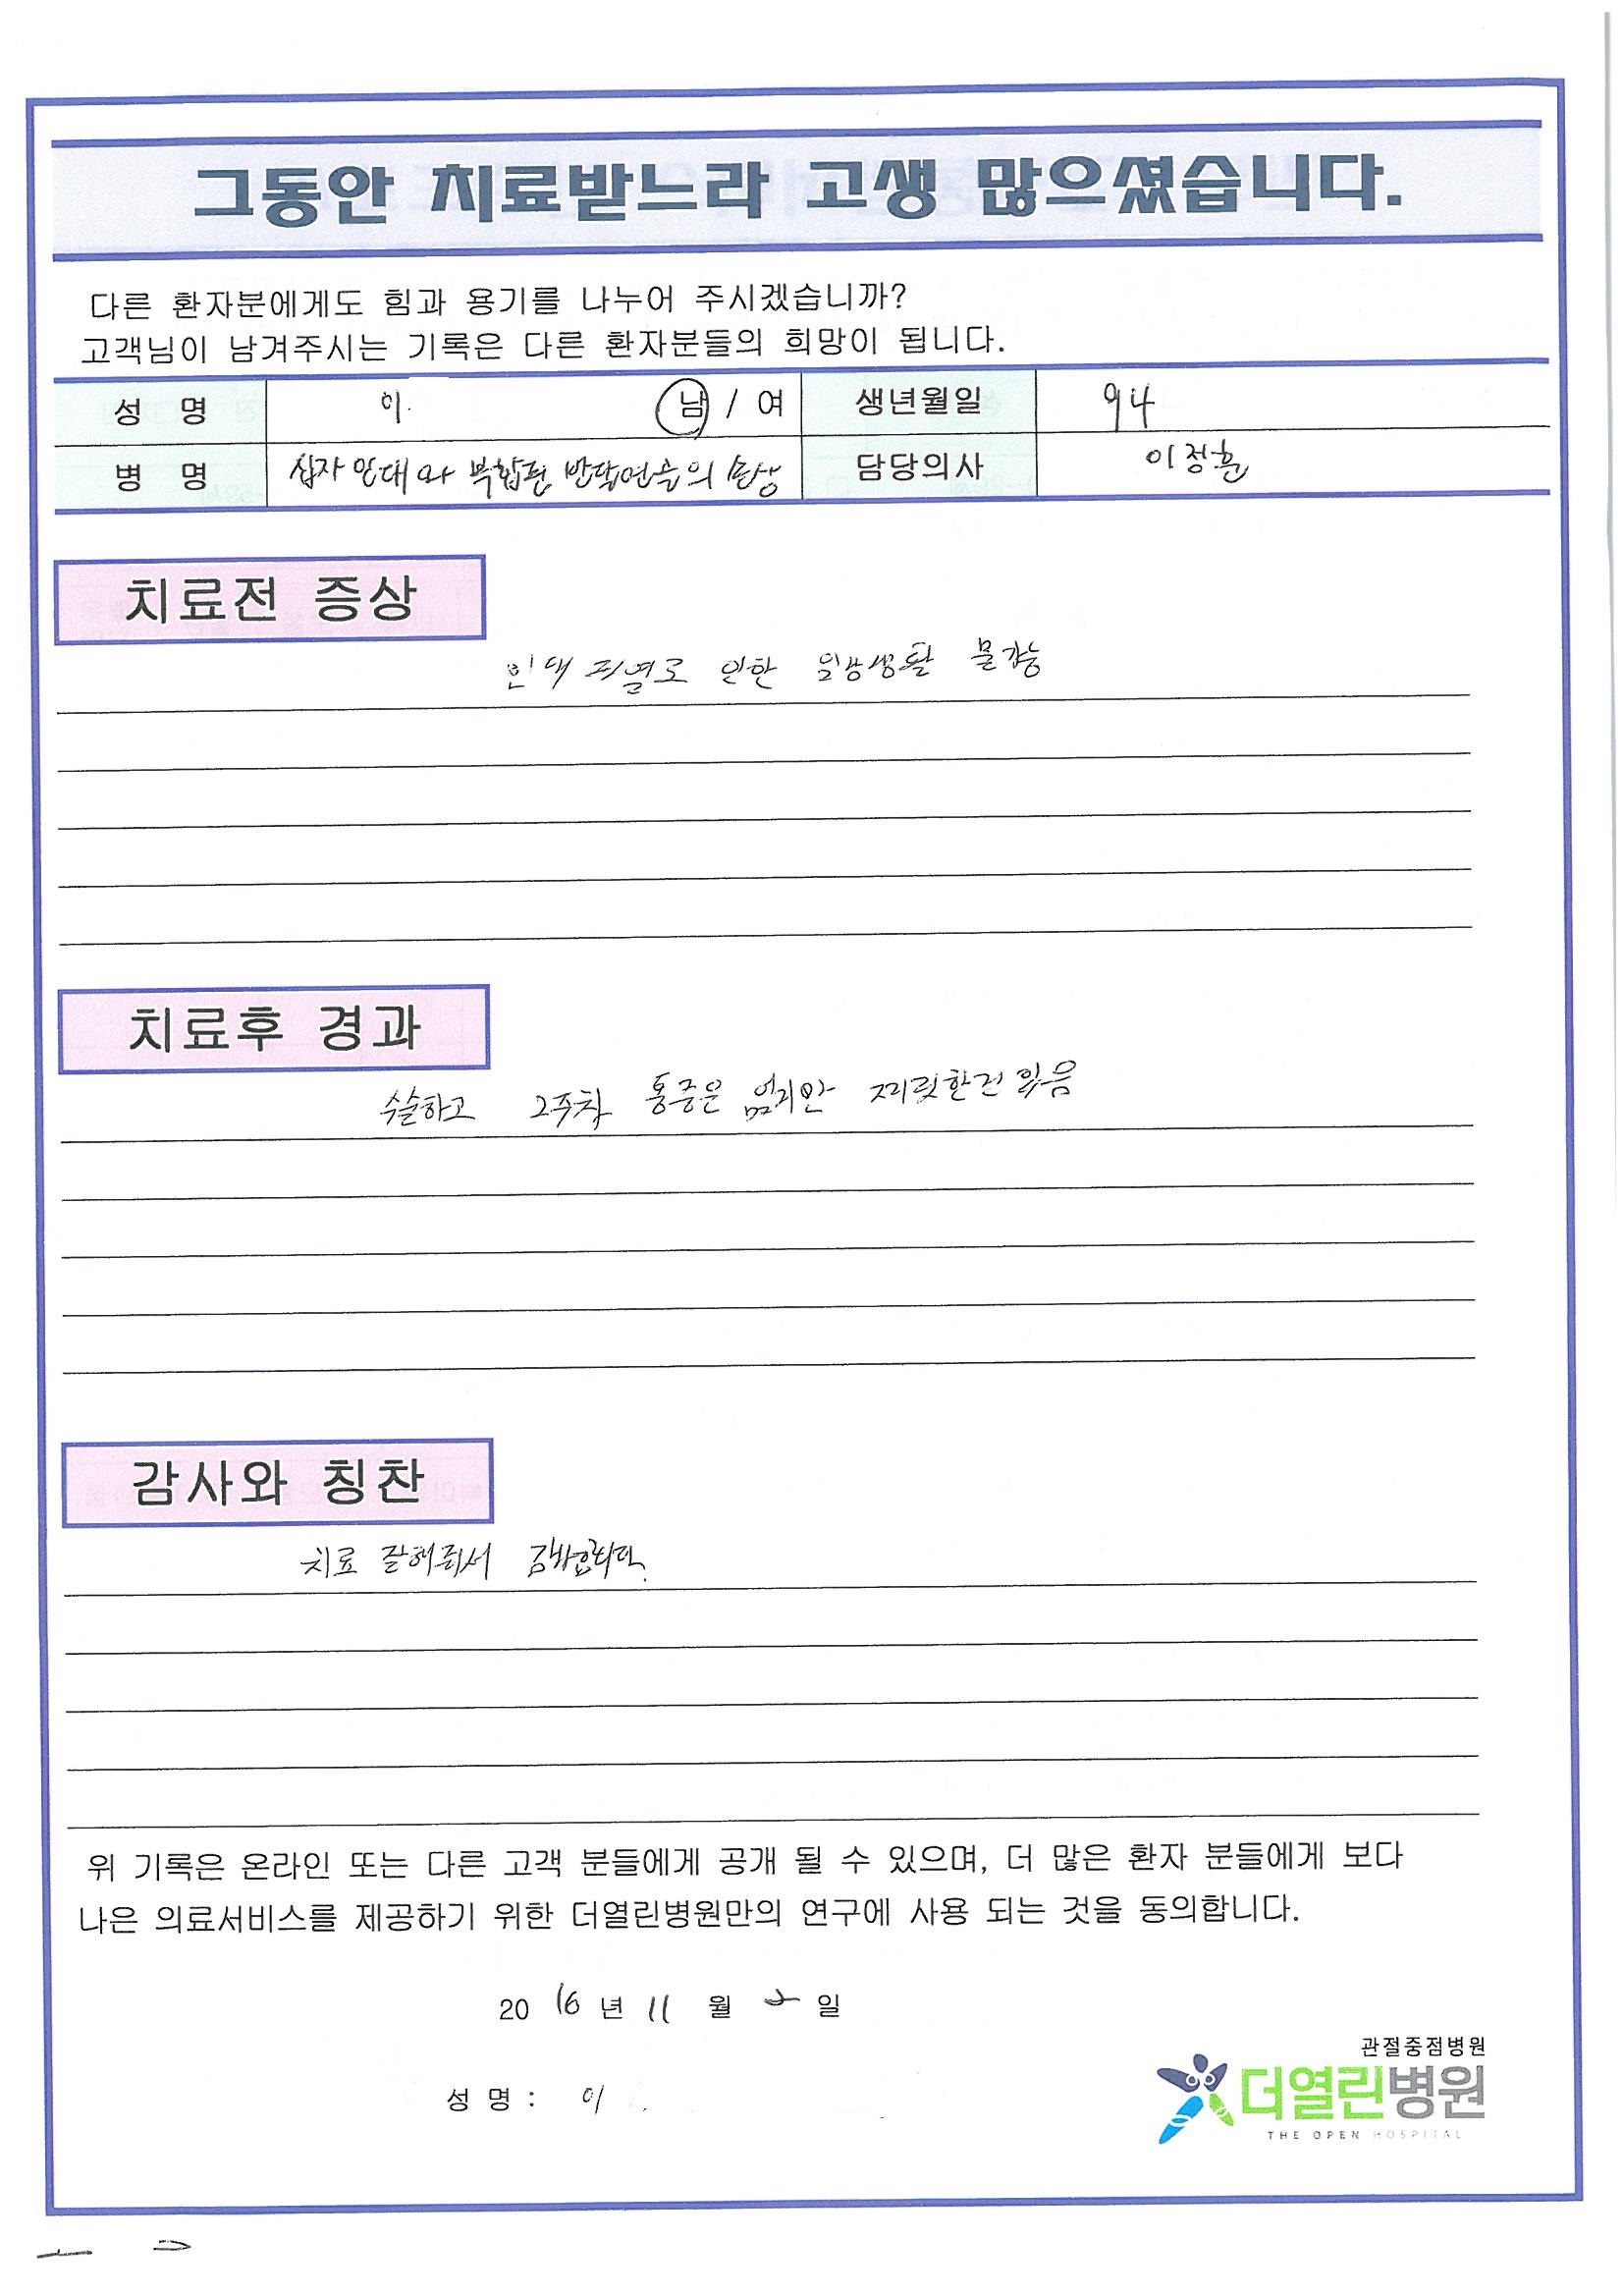 그동안 치료받느라 고생 많으셨습니다.
다른 환자분에게도 힘과 용기를 나누어 주시겠습니까?
고객님이 남겨주시는 기록은 다른 환자분들의 희망이 됩니다.
성 명 이. 남 / 여 생년월일 94
병 명 십자인대와 복합된 반달연손의 손상 담당의사 이정훈
치료전 증상
인대 파열로 인한 일상생활 불가능
치료후 경과
수술하고 2주차 통증은 없지만 찌릿한건 있음
감사와 칭찬
치료 잘해줘서 감사합니다.
위 기록은 온라인 또는 다른 고객 분들에게 공개 될 수 있으며, 더 많은 환자 분들에게 보다
나은 의료서비스를 제공하기 위한 더열린병원만의 연구에 사용 되는 것을 동의합니다.
20 16 년 11 월 2 일
관절중점병원
더열린병원
THE OPEN HOSPITAL
성 명 : 이